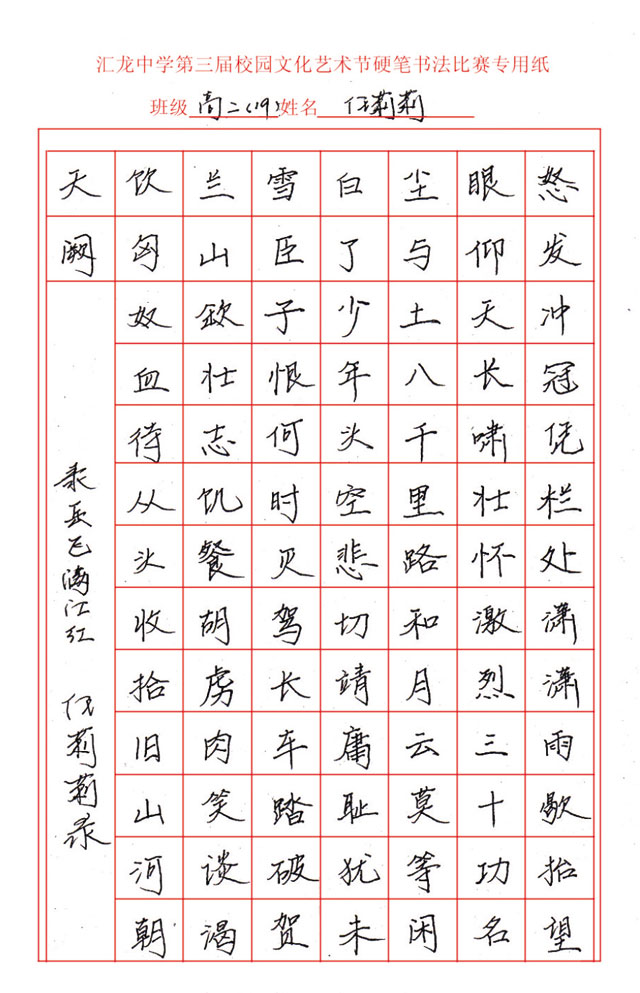 汇龙中学第三届校园文化艺术节硬笔书法比赛专用纸
班级 高二(19) 姓名 任莉莉
怒发冲冠凭栏处潇潇雨歇抬望
眼仰天长啸壮怀激烈三十功名
尘与土八千里路和月云莫等闲
白了少年头空悲切靖庸耻犹未
雪臣子恨何时灭驾长车踏破贺
兰山缺壮志饥餐胡虏肉笑谈渴
饮匈奴血待从头收拾旧山河朝
天阙
岳飞满江红 任莉莉录